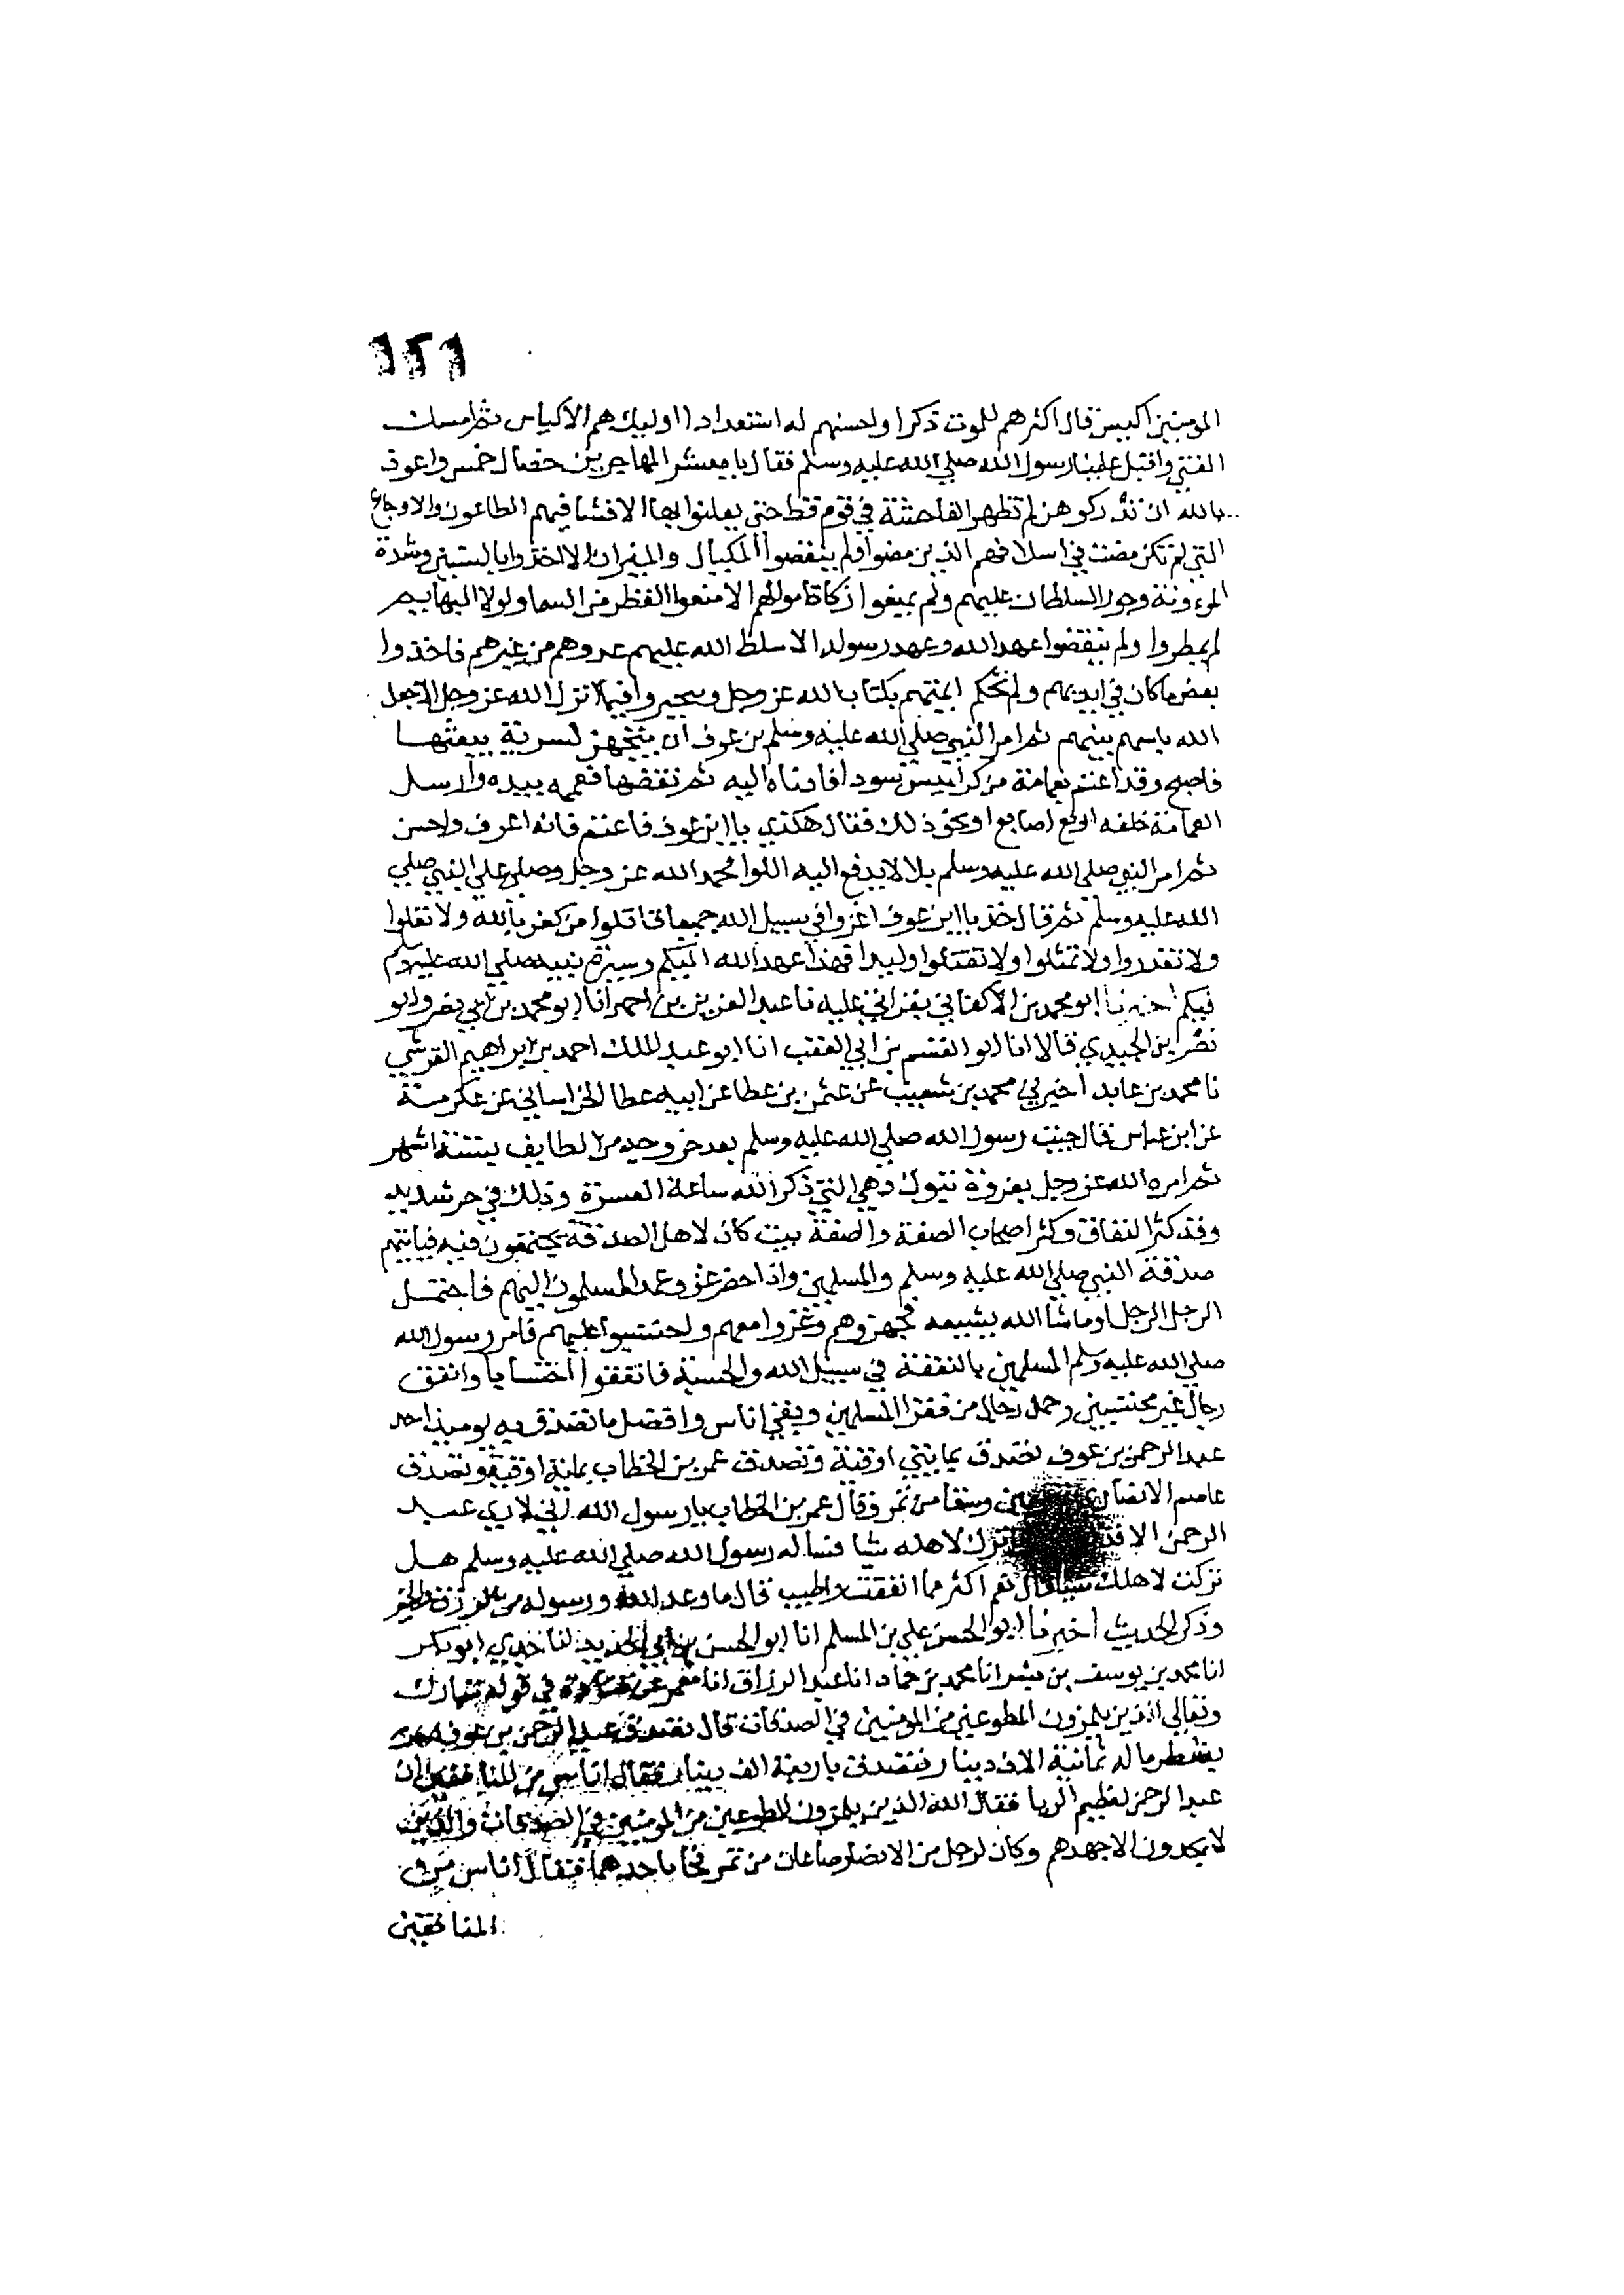 ١٢١
المومنين اكيس قال اكثرهم للموت ذكرا واحسنهم له استعدادا اوليك هم الاكياس ثم امسك
الفتى واقبل علينا رسول الله صلي الله عليه وسلم فقال يا معشر المهاجرين خصال خمس واعوذ
بالله ان تدركوهن لم تظهر الفاحشة في قوم قط حتى يعلنوا بها الا فشا فيهم الطاعون والاوجاع
التي لم تكن مضت في اسلافهم الذين مضوا ولم ينقصوا المكيال والميزان الا اخذوا بالسنين وشدة
الموءونة وجور السلطان عليهم ولم يمنعوا زكاة اموالهم الا منعوا القطر من السما ولولا البهايم
لم يمطروا ولم ينقضوا عهد الله وعهد رسوله الا سلط الله عليهم عدوهم من غيرهم فاخذوا
بعض ما كان في ايديهم ولم تحكم ايمتهم بكتاب الله عز وجل الا جعل
الله باسهم بينهم ثم امر النبي صلي الله عليه وسلم بن عوف ان يتجهز لسرية يبعثها
فاصبح وقد اعتم بعمامة من كرابيس سودا فادناه اليه ثم نقضها فعممه بيده وارسل
العمامة خلفه اربع اصابع او نحو ذلك فقال هكذي يا ابن عوف فاعتم فانه اعرف واحسن
ثم امر النبي صلي الله عليه وسلم بلالا يدفع اليه اللوا فحمد الله عز وجل وصلي علي النبي صلي
الله عليه وسلم ثم قال خذ يا ابن عوف اغزوا في سبيل الله جميعا قاتلوا من كفر بالله ولا تغلوا
ولا تغدروا ولا تمثلوا ولا تقتلوا وليدا فهذا عهد الله اليكم وسيرة نبيه صلي الله عليه وسلم
فيكم اخبرنا ابو محمد بن الاكفاني بقراتي عليه نا عبد العزيز بن احمد انا ابو محمد بن ابي نصر وابو
نصر ابن الجبيدي قالا انا ابو القسم بن ابي العقب انا ابو عبد الملك احمد بن ابراهيم القرشي
نا محمد بن عايد اخبرني محمد بن شعيب عن عثمن بن عطا عن ابيه عطا الخراساني عن عكرمة
عن ابن عباس قال رسول الله صلي الله عليه وسلم بعد خروجه من الطايف ستة اشهر
ثم امره الله عز وجل بغزوة تبوك وهي التي ذكر الله ساعة العسرة وذلك في حر شديد
وقد كثر النفاق وكثر اصحاب الصفة والصفة بيت كان لاهل الصدقة يجتمعون فيه فياتيهم
صدقة النبي صلي الله عليه وسلم والمسلمين واذا حضر غزو عمد المسلمون اليهم فاحتمل
الرجل الرجل او ما شا الله يشبعه فجهزوهم وغزوا معهم واحتسبوا عليهم فامر رسول الله
صلي الله عليه وسلم المسلمين بالنفقة في سبيل الله والحسبة فانفقوا احتسابا وانفق
رجال غير محتسبين وحمل رجال من فقرا المسلمين وبقي اناس وافضل ما تصدق به يوميذ احد
عبد الرحمن بن عوف تصدق بمايتي اوقية وتصدق عمر بن الخطاب بماية اوقية وتصدق
عاصم الانصاري وسقا من تمر وقال عمر بن الخطاب يا رسول الله اني لاري عبد
الرحمن الا قد ترك لاهله شيا فساله رسول الله صلي الله عليه وسلم هل
تركت لاهلك شيا قال نعم اكثر مما انفقت واطيب قال ما وعد الله ورسوله من الرزق والخير
وذكر الحديث اخبرنا ابو الحسن علي بن المسلم انا ابو الحسن بن ابي الحديد انا جدي ابو بكر
انا محمد بن يوسف بن بشر انا محمد بن حماد انا عبد الرزاق انا معمر عن قتادة في قوله تبارك
وتعالي الذين يلمزون المطوعين من المومنين في الصدقات قال تصدق عبد الرحمن بن عوف
بشطر ماله ثمانية الاف دينار فتصدق باربعة الف دينار فقال اناس من المنافقين ان
عبد الرحمن لعظيم الريا فقال الله الذين يلمزون المطوعين من المومنين في الصدقات والذين
لا يجدون الا جهدهم وكان لرجل من الانصار صاعان من تمر فجا باحدهما فقال اناس من
المنافقين